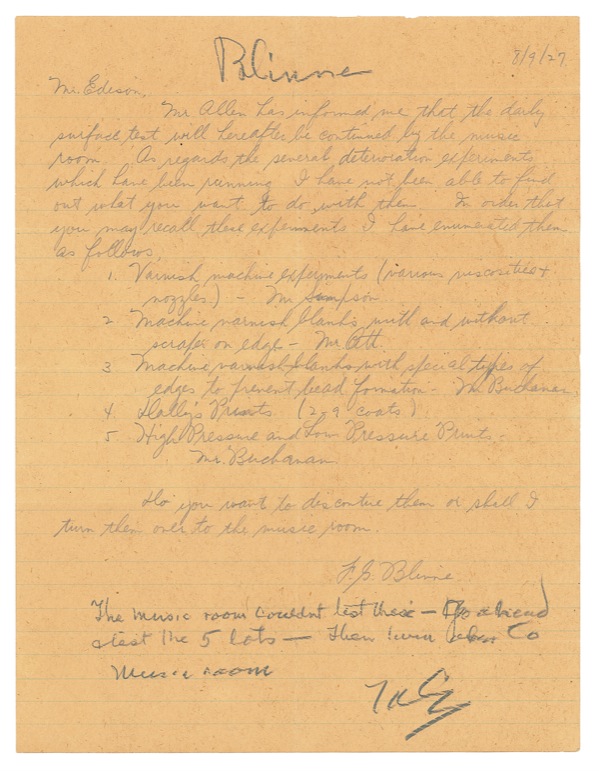 Blinne
8/9/27
Mr. Edison,
Mr. Allen has informed me that the daily
surface test will hereafter be continued by the music
room. As regards the several deterioration experiments
which have been running I have not been able to find
out what you want to do with them. In order that
you may recall these experiments I have enumerated them
as follows
1. Varnish machine experiments (various viscosities +
nozzles) - Mr Simpson
2 Machine varnish blanks with and without
scraper on edge - Mr. Ott.
3 Machine varnish blanks with special types of
edges to prevent bead formation - Mr Buchanan.
4 Dally's Prints (2-9 coats)
5 High Pressure and Low Pressure Prints -
Mr. Buchanan
Do you want to discontinue them or shall I
turn them over to the music room.
F.G. Blinne
The music room couldnt test these - Go ahead
& test the 5 lots - Then turn over to
Music room